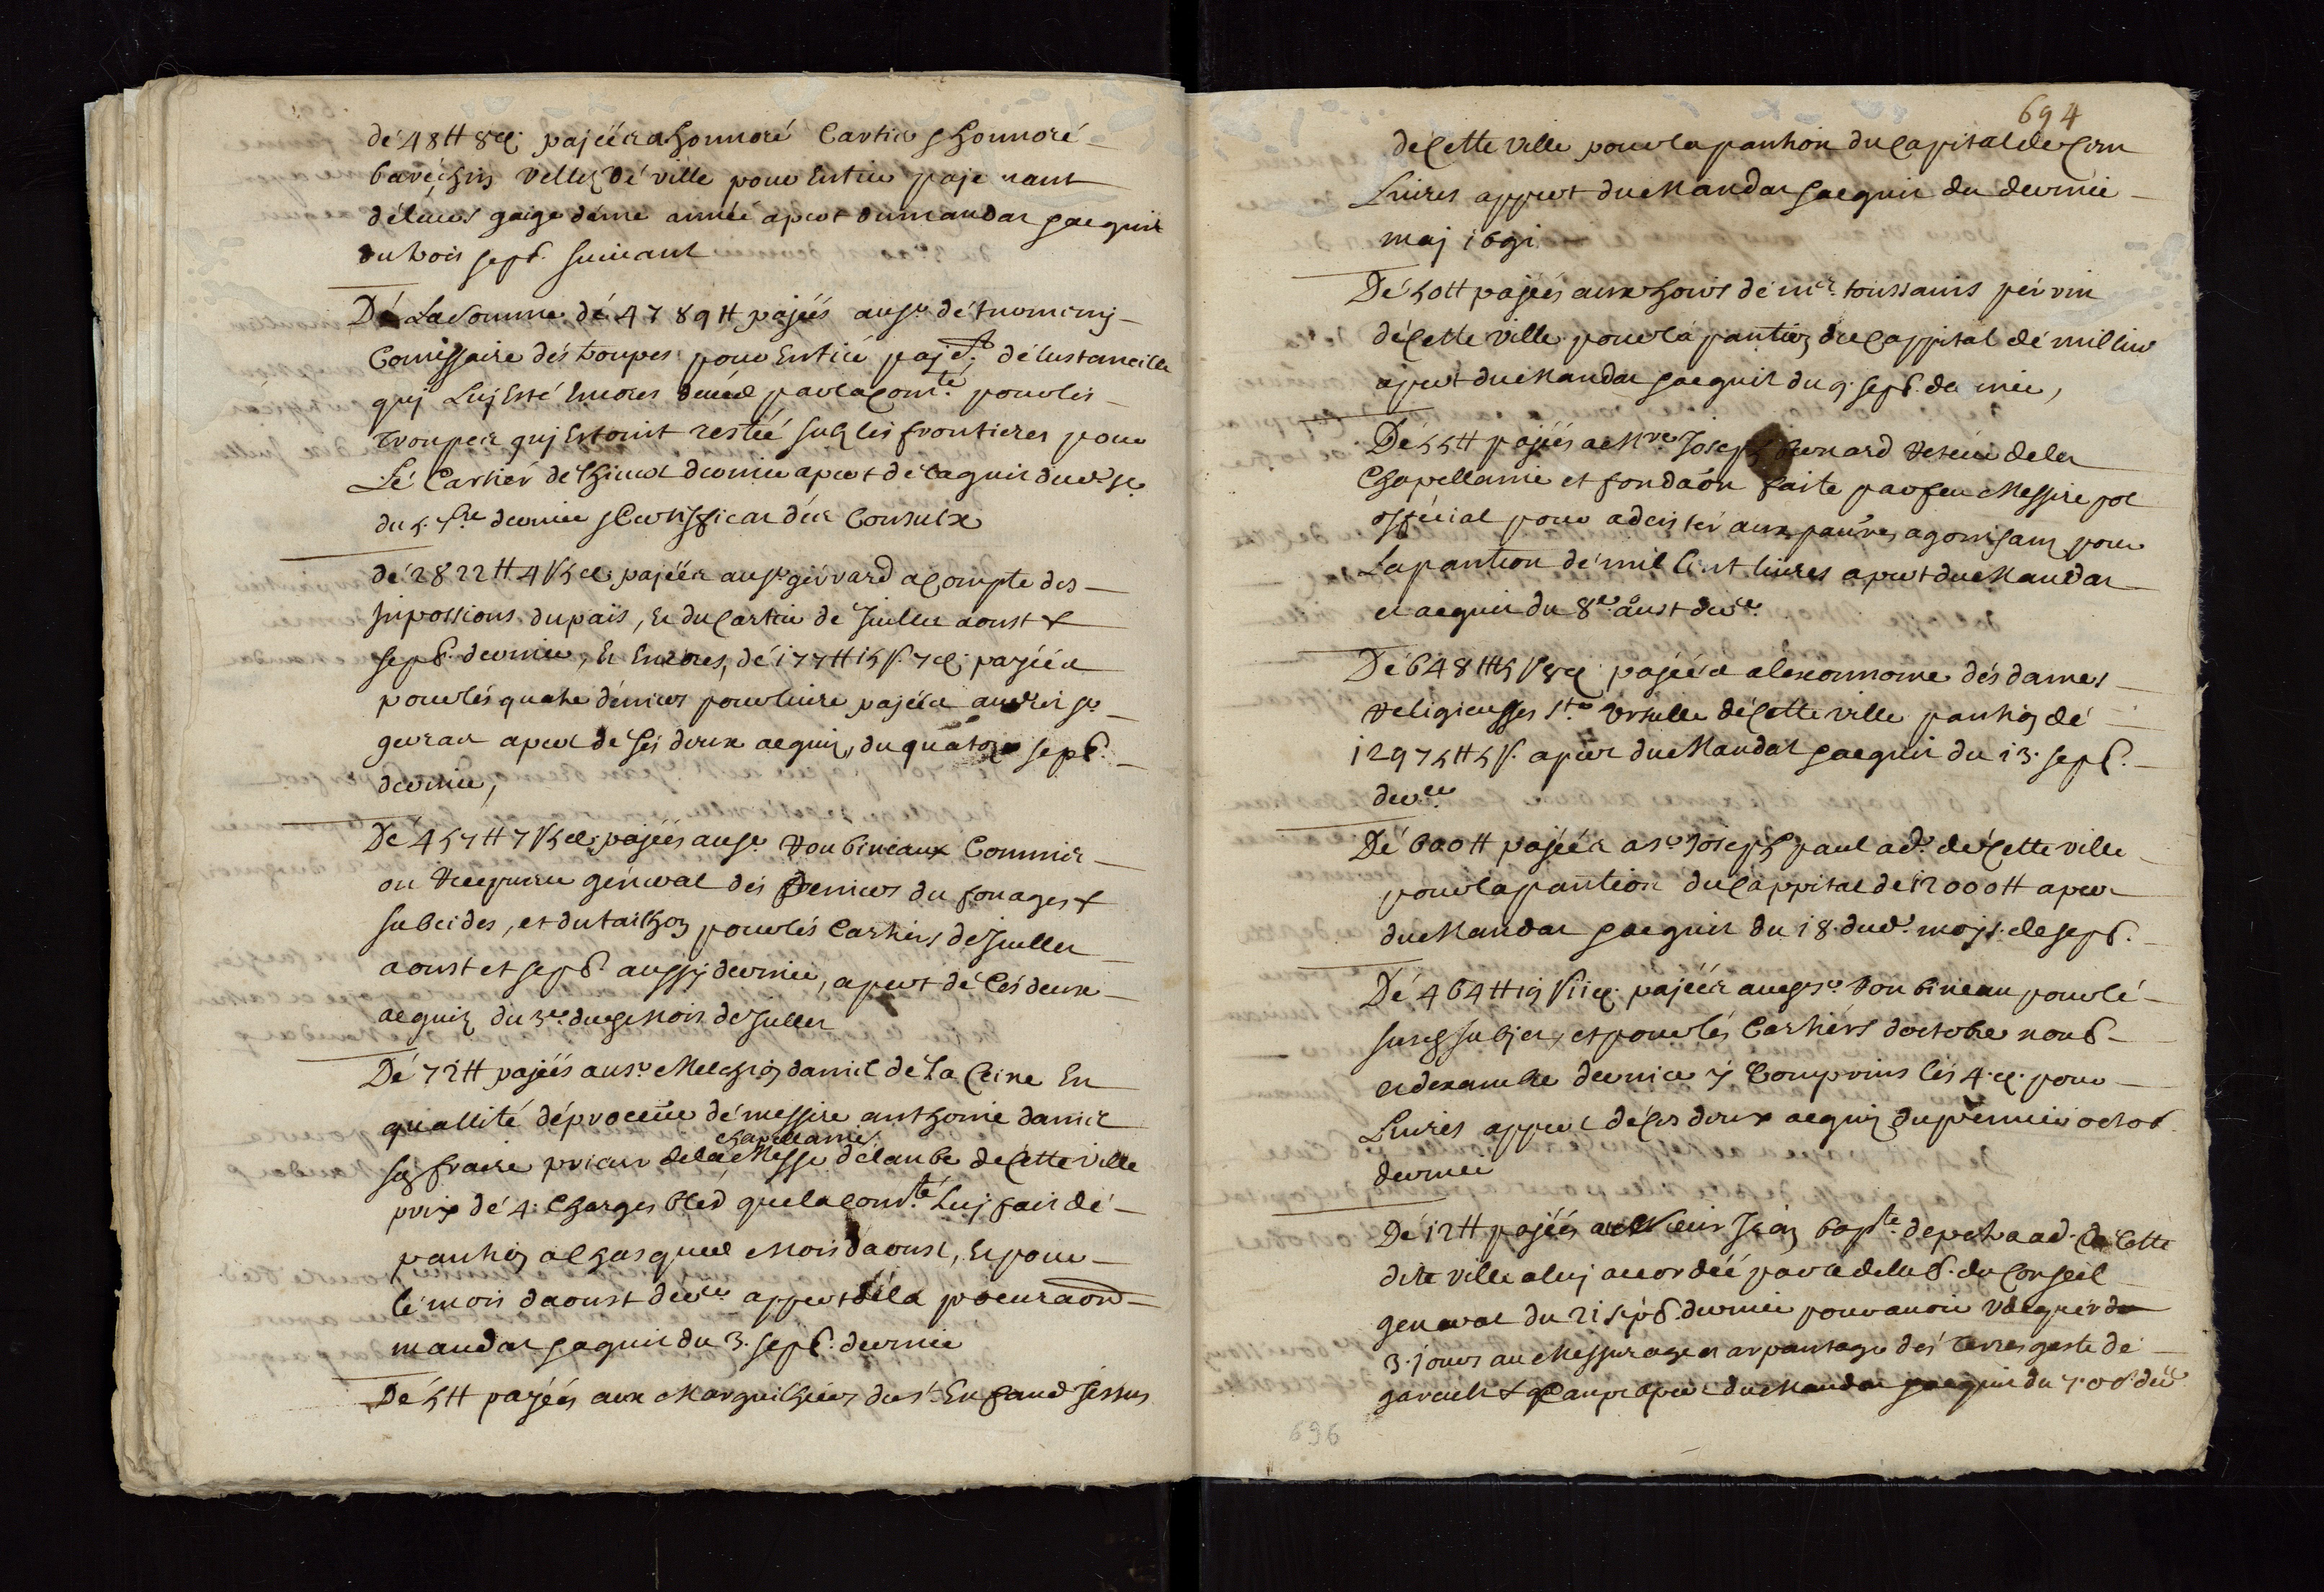 de 48 ₶ 8 d. pajées a honnoré Cartier & honnoré
valles dé ville pour Entier paje mant
déleurs gaige d'une année apert du mandat & acquit
du trois sept. suivant
Dé La somme dé 4789 ₶ pajées au sr dé
Comissaire dés troupes pour Entier paje.t dé Lustancille
quj Luj Esté Encores deued par la Com.té pour les
trouppes quj Estoint restéé sus les frontieres pour
Lé Cartier de dernier apert dé laquit dud. sr
du 5. dernier & Certifficat dés Consulx
dé 2822 ₶ 4 s 5 d. pajées au sr gérard a Compte des
Inpossions du païs, Et du Cartier de Juillet aoust &
sept. dernier, Et Encores, dé 177 ₶ 15 s. 7 d. pajées
pour lés quatre déniers pour livre pajées audit sr
gerard apert de ses deux acquis, du quatorze sept.
dernier,
Dé 457 ₶ 7 s 5 d. pajéés au sr Commis
ou Receveur géneral dés deniers du fouages &
subcides, et du tailhon pour lés Cartiers de Juillet
aoust et sept. aussy dernier, apert dé Cés deux
acquis du 3e. dud. Mois de Juillet
Dé 72 ₶ pajéés au sr Melchion daniel dé La Ceine En
quallité dé procureur dé messire anthoine daniel
son fraire prieur dela chapellanie Messe délaube de Cette ville
prix dé 4. Charges bled que la Com.té Luj fait dé
pantion a Chasqueé Mois daoust, Et pour
lé mois daoust der.er appert déla procuraon
mandat & aquit du 3. sept. dernier
Dé 5 ₶ pajéés aux Marguilhiers du st Enfand Jessus
694
dé Cette Ville pour la pantion du Capital de Cent
Livres appert du Mandat & acquit du dernier
maj 1691
Dé 50 ₶ pajéés aux hoirs dé mr. toussains pérrin
dé Cette ville pour la pantion du Cappital dé mil livres
apert du Mandat & acquit du 9. sept. dernier,
Dé 55 ₶ pajéés a Mre Joseph bernard Reteur dela
Chapellanie et fondaôn faite par feu Messire
official pour adcister aux pauvres agonisans pour
La pantion dé mil Cent livres apert du Mandat
et acquit du 8e. aust der.er
Dé 648 ₶ 15 s 8 d. pajéés a leconnome dés dames
Religieusses Ste Ursulle dé Cette ville pantion dé
12975 ₶ 5 s. apert du Mandat & acquit du 13. sept.
der.er
Dé 600 ₶ pajéés a sr Joseph paul ad.t dé Cette ville
pour la pantion du Cappital de 12000 ₶ apert
du Mandat & acquit du 18. dud. mojs. de sept.
Dé 464 ₶ 19 s 11 d. pajéés aud. sr pour lé
susd. subjet, et pour lés Cartiers doctobre nov.
et dexambre dernier y Comprins lés 4. d. pour
Livres appert dé Ces deux acquis du premier octob.
dernier
Dé 12 ₶ pajéés a Mr. sieur Jean bapte. depetra ad. dé Cette
dite ville a luj accordéé par la delib. du Conseil
general du 21 sept. dernier pour avoir vacquér
3. jours au Messurage et arpantage dés Terres gaste dé
apert du Mandat & acquit du 7. oct. der.er
696